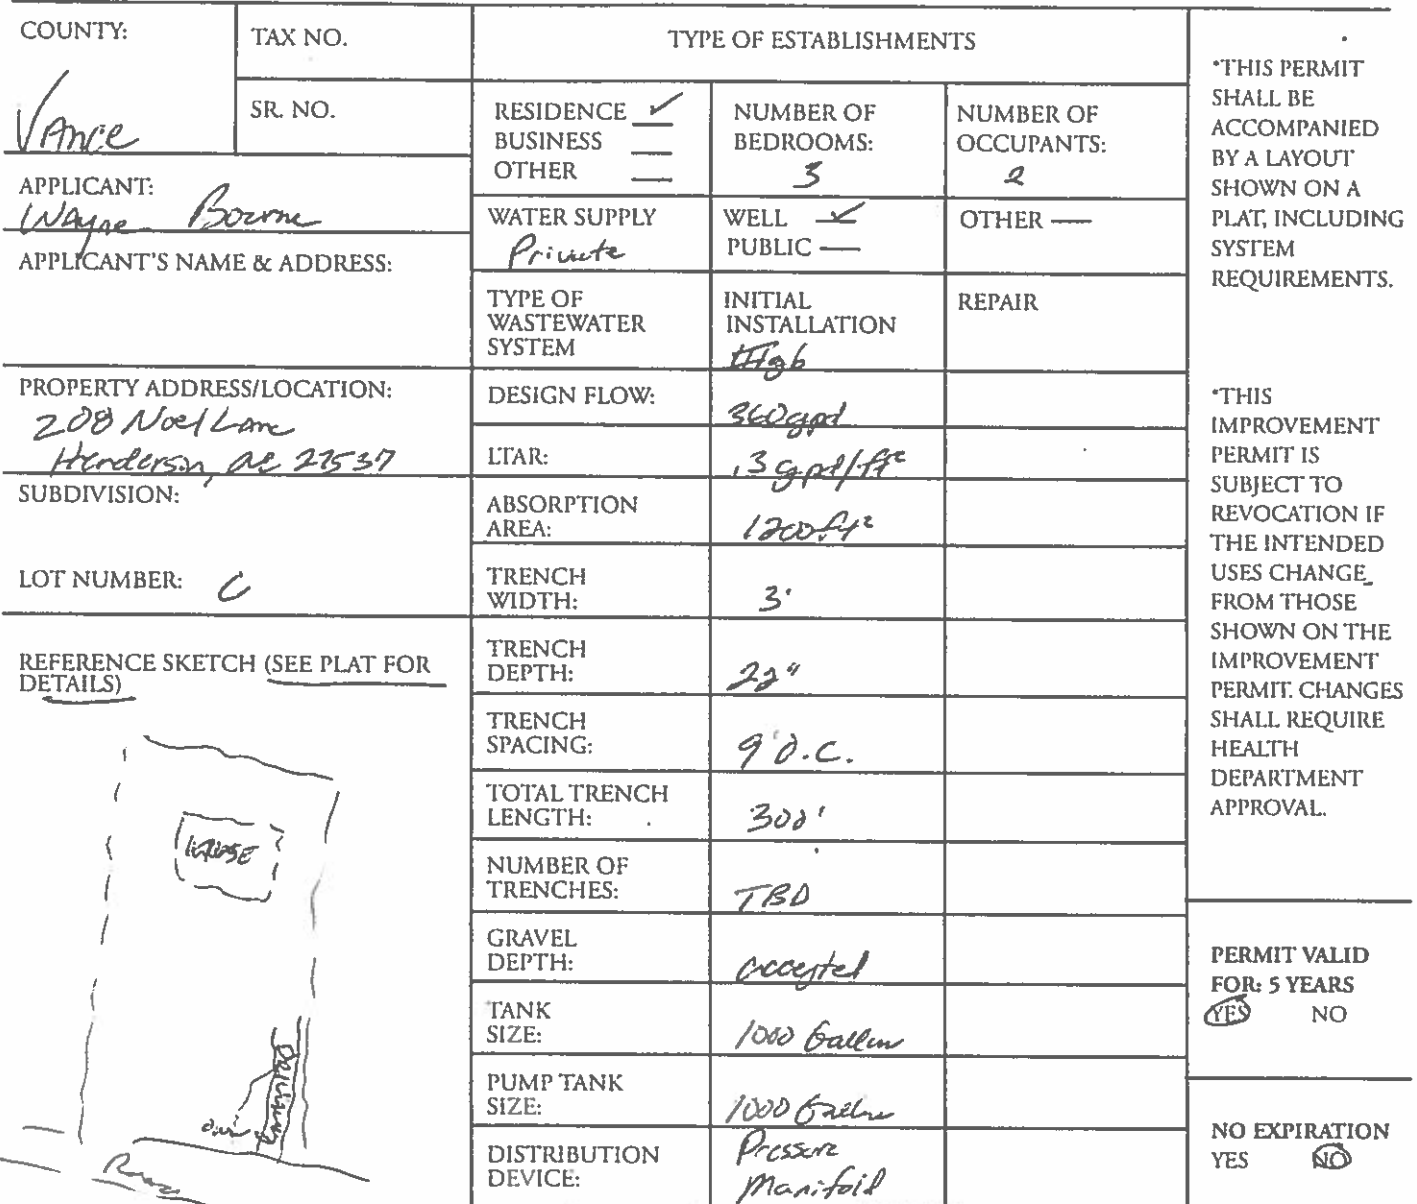 COUNTY:
Vance
TAX NO.
SR. NO.
APPLICANT:
Wayne Bourne
APPLICANT'S NAME & ADDRESS:
PROPERTY ADDRESS/LOCATION:
208 Noel Lane
Henderson, NC 27537
SUBDIVISION:
LOT NUMBER: C
REFERENCE SKETCH (SEE PLAT FOR
DETAILS)
HOUSE
Driveway
TYPE OF ESTABLISHMENTS
RESIDENCE ✓
BUSINESS
OTHER
NUMBER OF
BEDROOMS:
3
NUMBER OF
OCCUPANTS:
2
WATER SUPPLY
Private
WELL ✓
PUBLIC
OTHER
TYPE OF
WASTEWATER
SYSTEM
INITIAL
INSTALLATION
IIIgb
REPAIR
DESIGN FLOW:
360gpd
LTAR:
.3 gpd/ft²
ABSORPTION
AREA:
1200ft²
TRENCH
WIDTH:
3'
TRENCH
DEPTH:
22"
TRENCH
SPACING:
9' O.C.
TOTAL TRENCH
LENGTH:
300'
NUMBER OF
TRENCHES:
TBD
GRAVEL
DEPTH:
accepted
TANK
SIZE:
1000 Gallon
PUMP TANK
SIZE:
1000 Gallon
DISTRIBUTION
DEVICE:
Pressure
Manifold
*THIS PERMIT
SHALL BE
ACCOMPANIED
BY A LAYOUT
SHOWN ON A
PLAT, INCLUDING
SYSTEM
REQUIREMENTS.
*THIS
IMPROVEMENT
PERMIT IS
SUBJECT TO
REVOCATION IF
THE INTENDED
USES CHANGE
FROM THOSE
SHOWN ON THE
IMPROVEMENT
PERMIT. CHANGES
SHALL REQUIRE
HEALTH
DEPARTMENT
APPROVAL.
PERMIT VALID
FOR: 5 YEARS
YES NO
NO EXPIRATION
YES NO